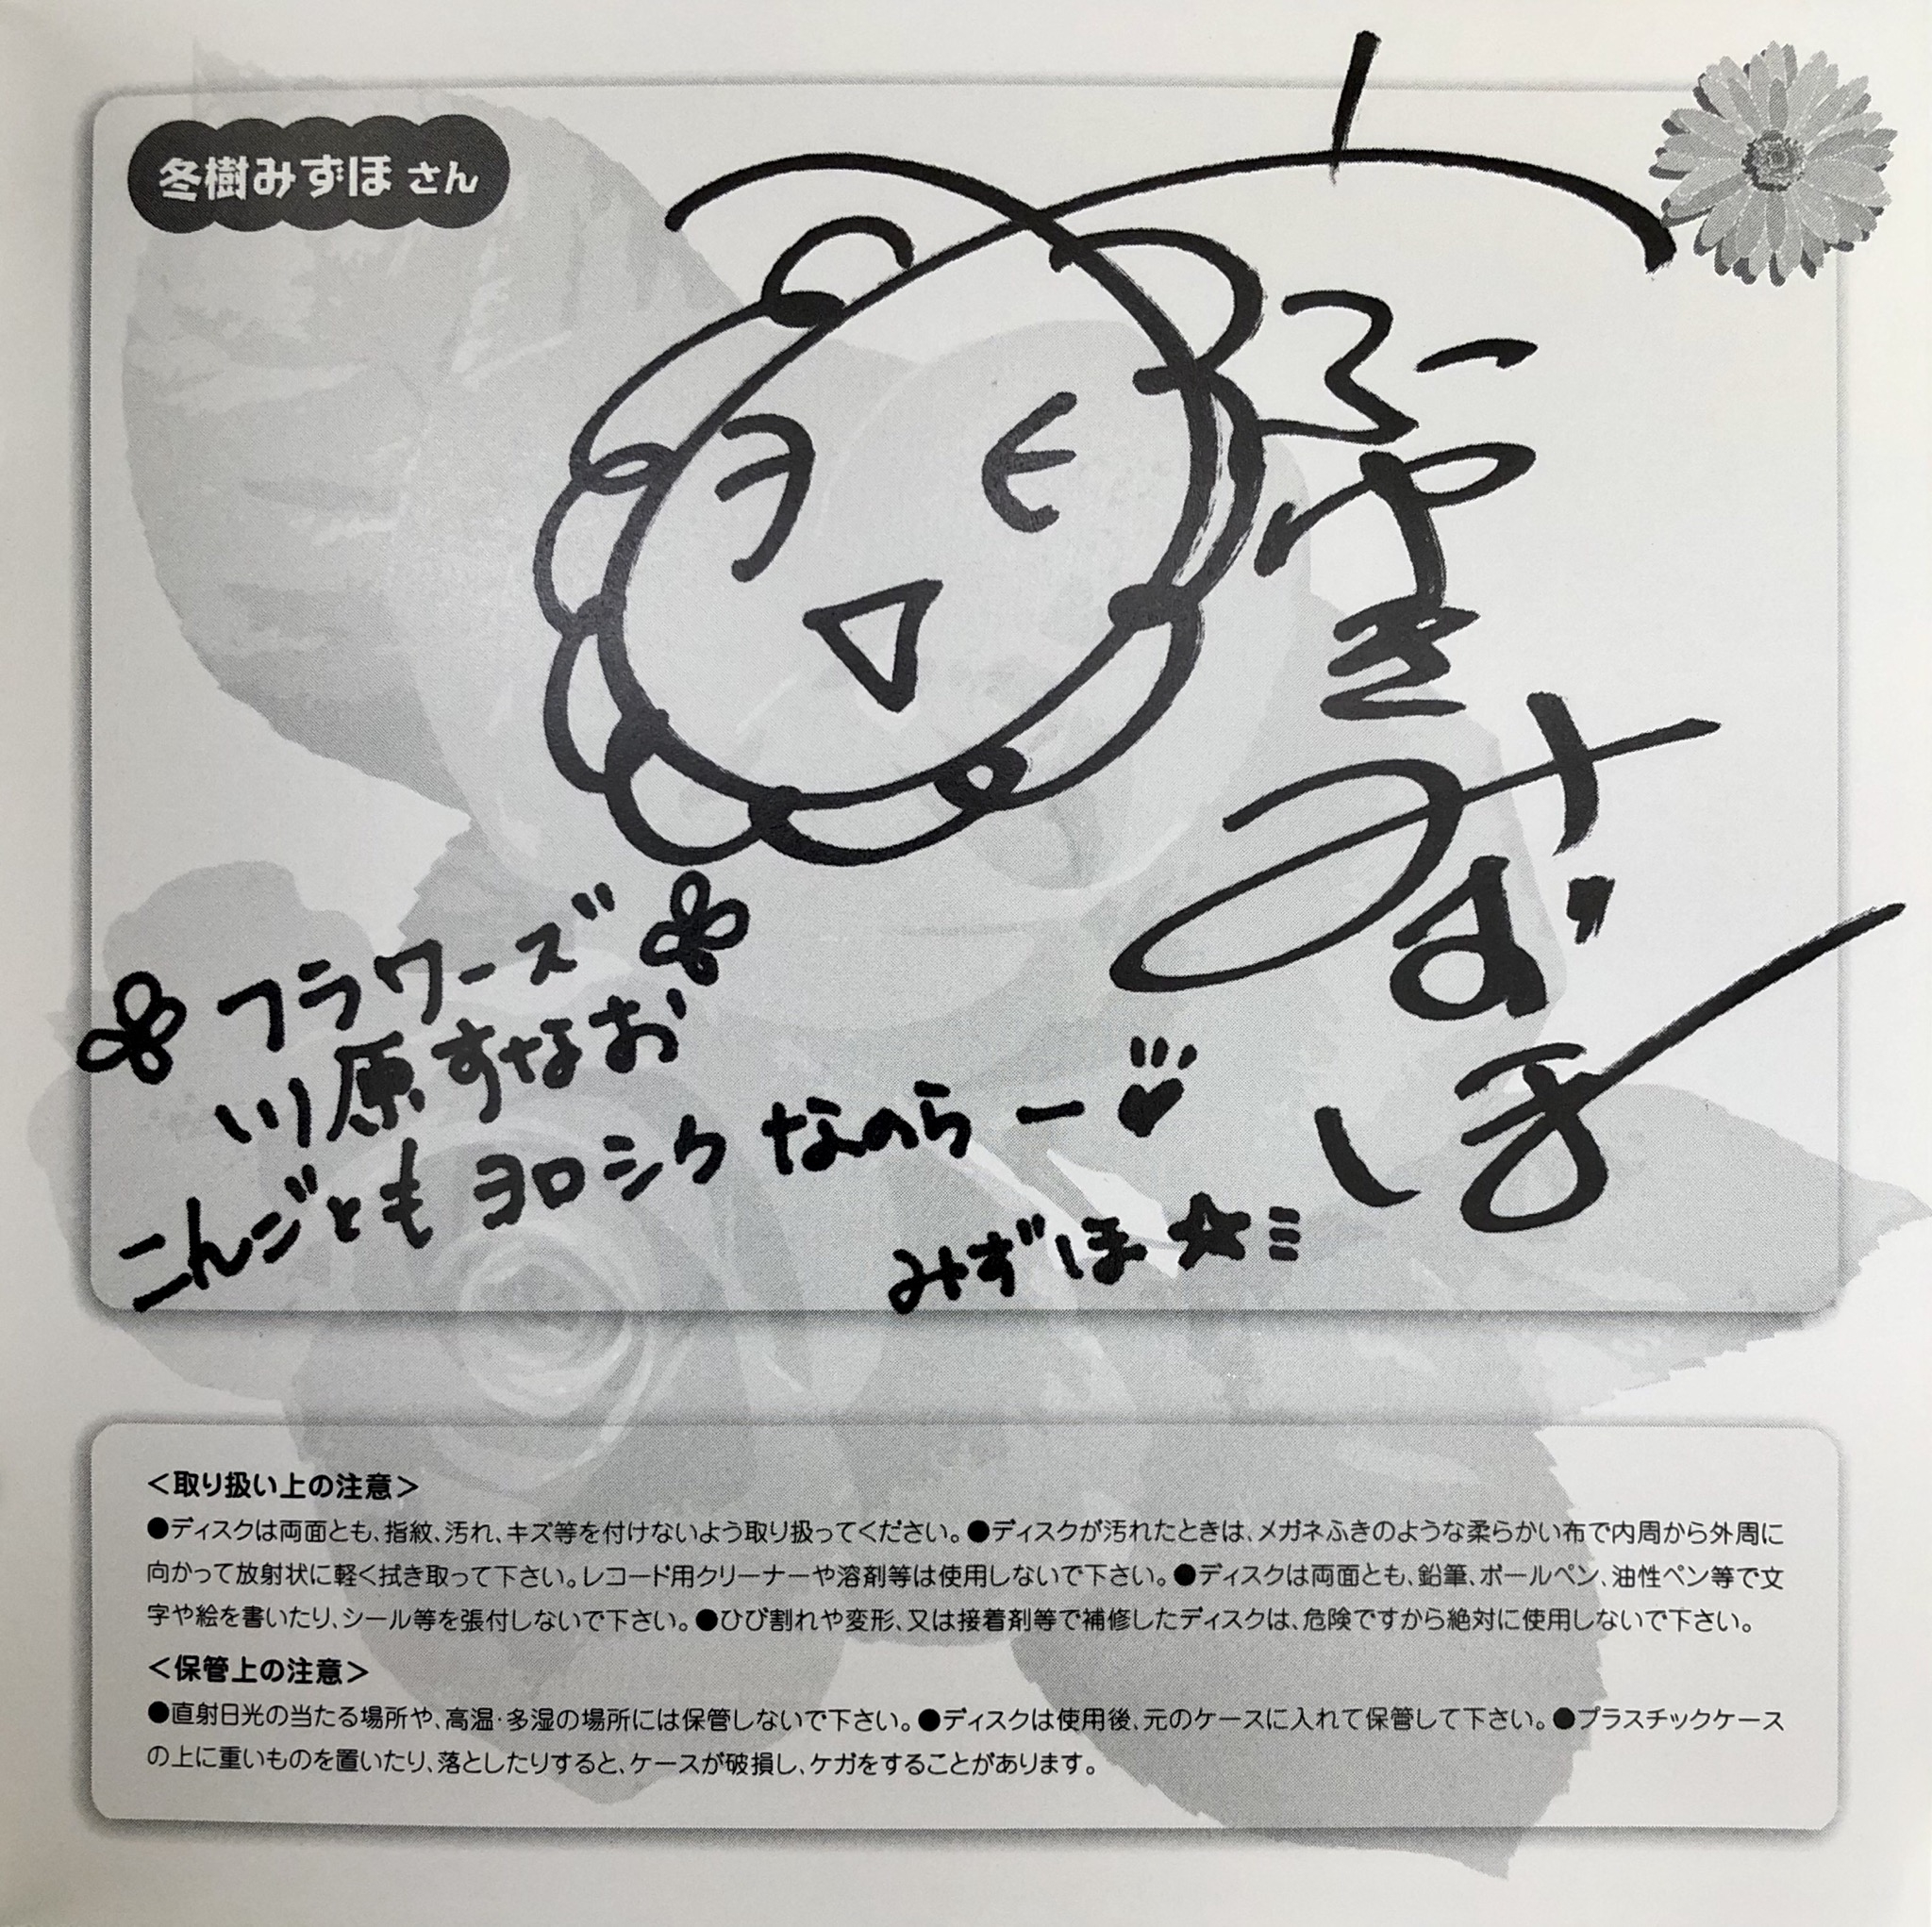 冬樹みずほ さん
ふゆき
みずほ
フラワーズ
川原すなお
こんごとも ヨロシク なのらー♥
みずほ☆
＜取り扱い上の注意＞
●ディスクは両面とも、指紋、汚れ、キズ等を付けないよう取り扱ってください。●ディスクが汚れたときは、メガネふきのような柔らかい布で内周から外周に
向かって放射状に軽く拭き取って下さい。レコード用クリーナーや溶剤等は使用しないで下さい。●ディスクは両面とも、鉛筆、ボールペン、油性ペン等で文
字や絵を書いたり、シール等を張付しないで下さい。●ひび割れや変形、又は接着剤等で補修したディスクは、危険ですから絶対に使用しないで下さい。
＜保管上の注意＞
●直射日光の当たる場所や、高温・多湿の場所には保管しないで下さい。●ディスクは使用後、元のケースに入れて保管して下さい。●プラスチックケース
の上に重いものを置いたり、落としたりすると、ケースが破損し、ケガをすることがあります。